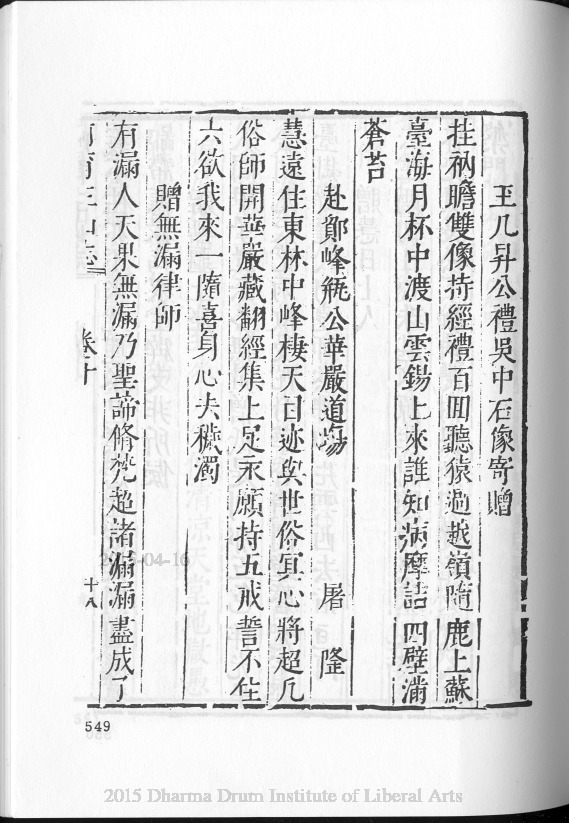 玉几昇公禮吳中石像寄贈
挂衲瞻雙像持經禮百回聽猿過越嶺隨鹿上蘇
臺海月杯中渡山雲錫上來誰知病摩詰四壁滿
蒼苔
赴鄮峰甁公華嚴道場 屠隆
慧遠住東林中峰棲天目迹與世俗冥心將超凡
俗師開華嚴藏翻經集上足示願持五戒誓不住
六欲我來一隨喜身心去穢濁
贈無漏律師
有漏人天果無漏乃聖諦脩梵超諸漏漏盡成了
育王山志
卷十
十八
549
2015-04-16
2015 Dharma Drum Institute of Liberal Arts